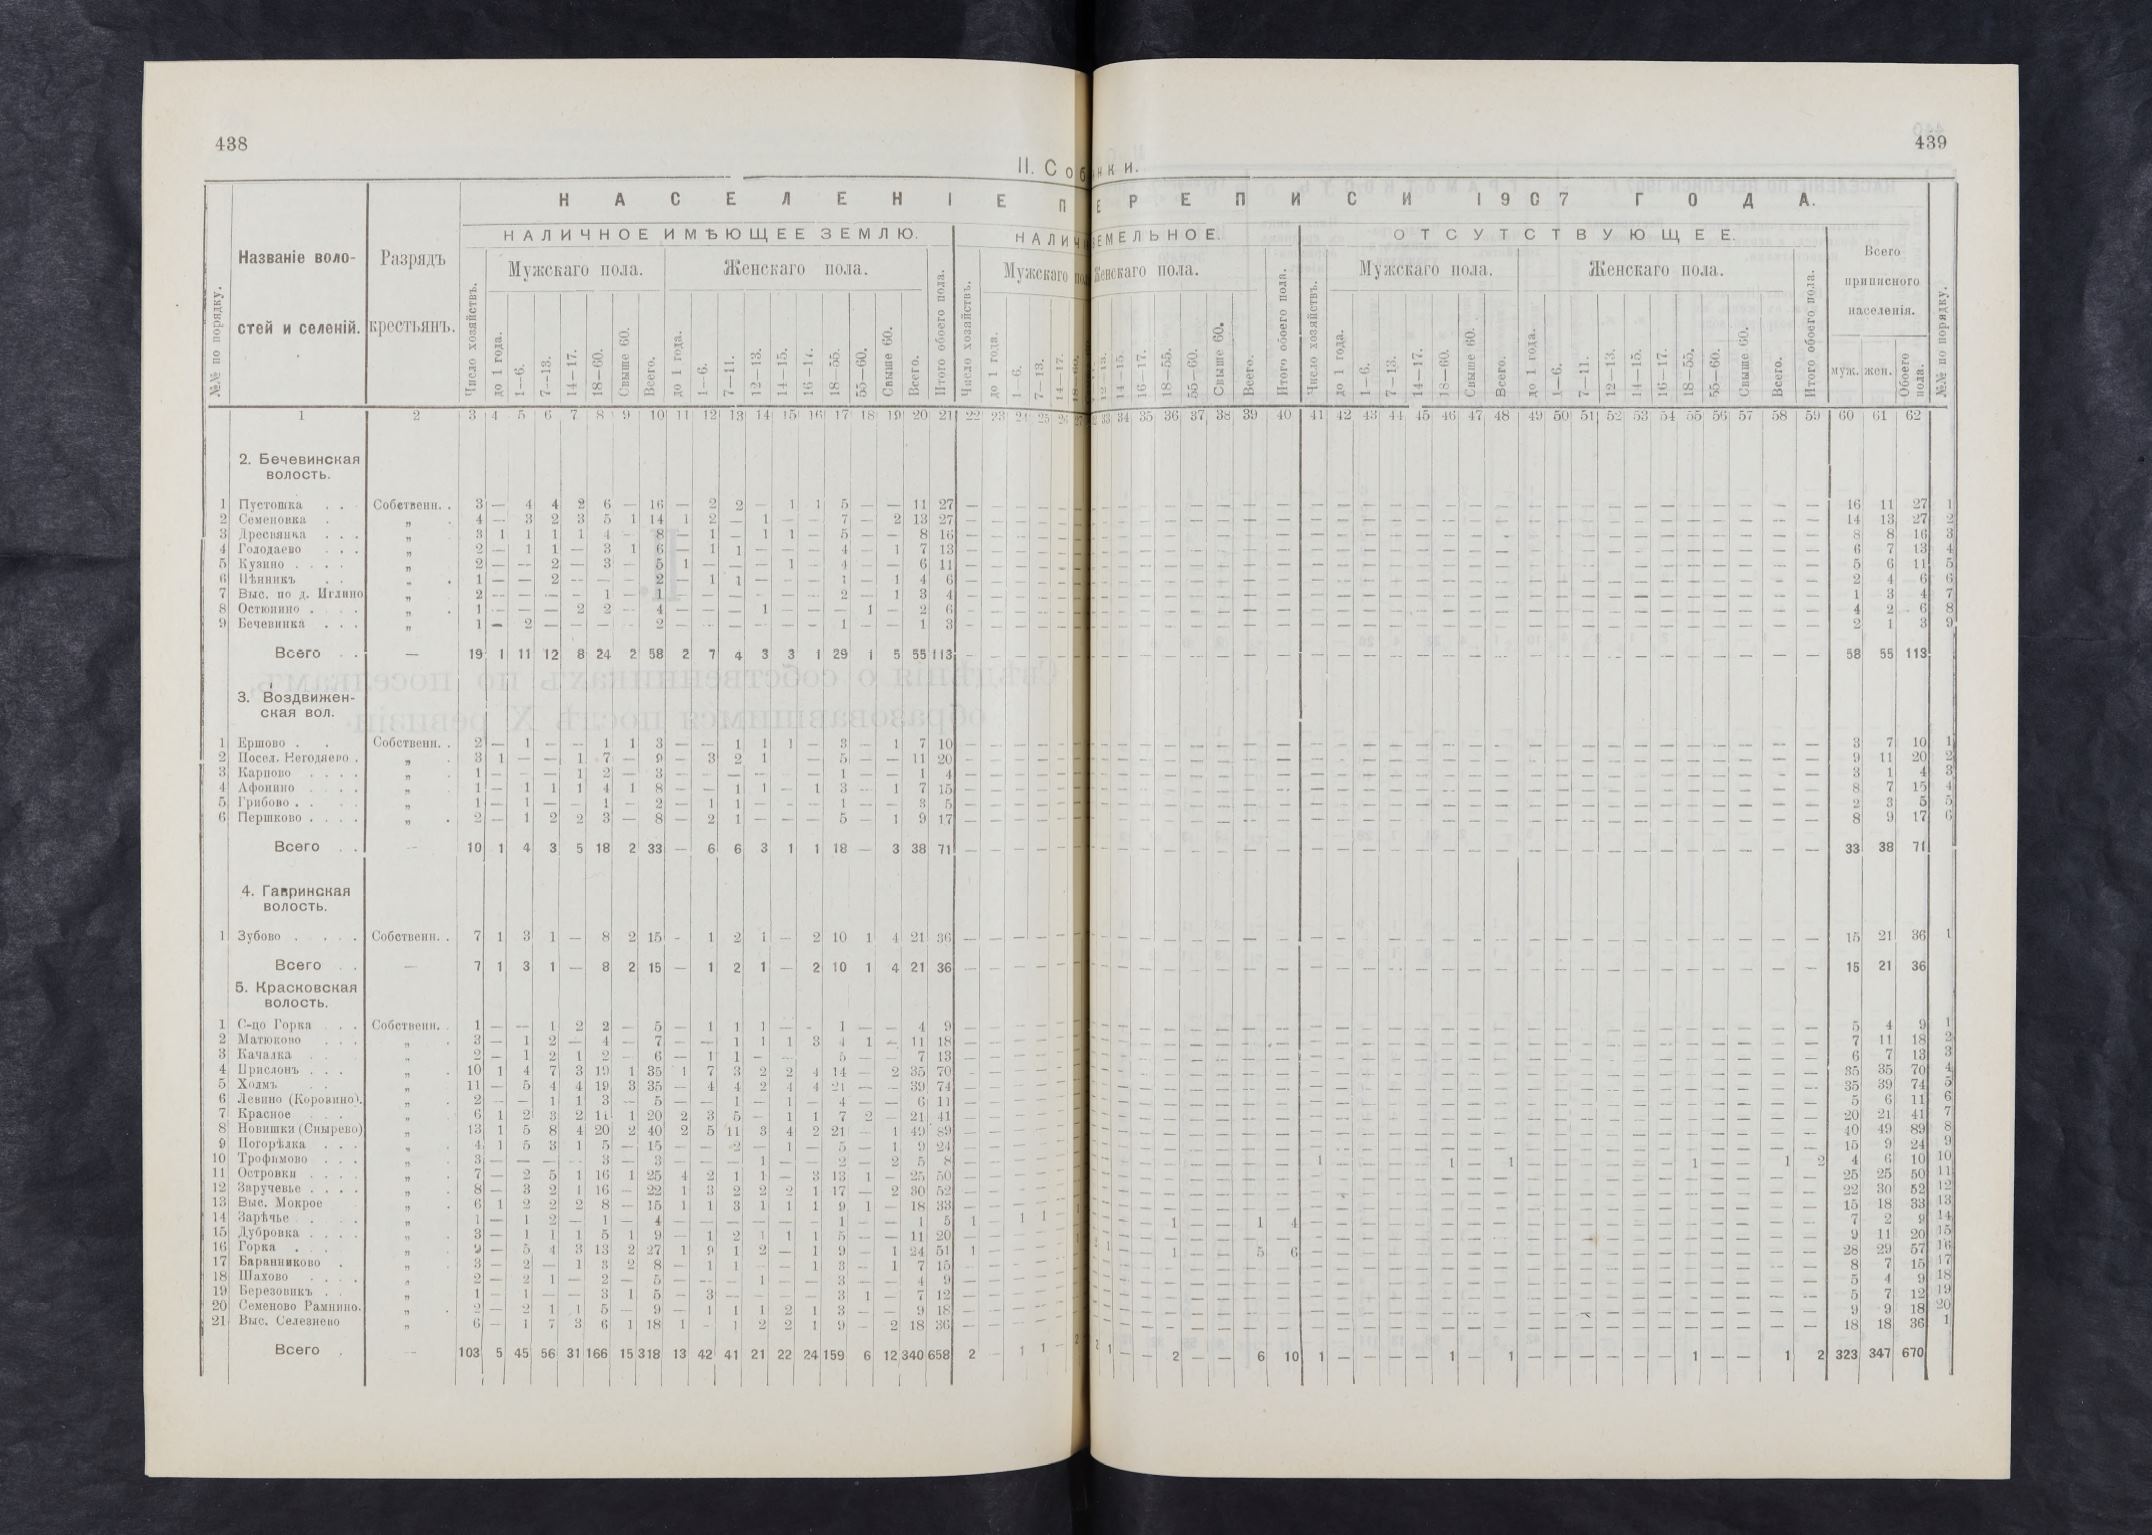 438
439
II. Соб нки.
НАСЕЛЕНІЕ ПЕРЕПИСИ 1907 ГОДА.
НАЛИЧНОЕ ИМѢЮЩЕЕ ЗЕМЛЮ.
НАЛИЧ ЗЕМЕЛЬНОЕ.
ОТСУТСТВУЮЩЕЕ.
№№ по порядку.
Названіе воло-
стей и селеній.
Разрядъ
крестьянъ.
Число хозяйствъ.
Мужскаго пола.
до 1 года. 1—6. 7—13. 14—17. 18—60. Свыше 60. Всего.
Женскаго пола.
до 1 года. 1—6. 7—11. 12—13. 14—15. 16—17. 18—55. 55—60. Свыше 60. Всего.
Итого обоего пола.
Число хозяйствъ.
Мужскаго по
до 1 года. 1—6. 7—13. 14—17. 18—60.
Женскаго пола.
12—13. 14—15. 16—17. 18—55. 55—60. Свыше 60. Всего.
Итого обоего пола.
Число хозяйствъ.
Мужскаго пола.
до 1 года. 1—6. 7—13. 14—17. 18—60. Свыше 60. Всего.
Женскаго пола.
до 1 года. 1—6. 7—11. 12—13. 14—15. 16—17. 18—55. 55—60. Свыше 60. Всего.
Итого обоего пола.
Всего
приписного
населенія.
муж. жен. Обоего пола.
№№ по порядку.
1 2 3 4 5 6 7 8 9 10 11 12 13 14 15 16 17 18 19 20 21 22 23 24 25 26 27 33 34 35 36 37 38 39 40 41 42 43 44 45 46 47 48 49 50 51 52 53 54 55 56 57 58 59 60 61 62
2. Бечевинская
волость.
1 Пустошка . . Собственн. . 3 — 4 4 2 6 — 16 — 2 2 — 1 1 5 — — 11 27 16 11 27 1
2 Семеновка . „ . 4 — 3 2 3 5 1 14 1 2 — 1 — — 7 — 2 13 27 14 13 27 2
3 Дресвянка . . . „ . 3 1 1 1 1 4 — 8 — 1 — 1 1 — 5 — — 8 16 8 8 16 3
4 Голодаево . . . „ . 2 — 1 1 — 3 1 6 — 1 1 — — — 4 — 1 7 13 6 7 13 4
5 Кузино . . . . „ . 2 — — 2 — 3 — 5 1 — — — 1 — 4 — — 6 11 5 6 11 5
6 Пѣнникъ . . „ . 1 — — 2 — — — 2 — 1 1 — — — 1 — 1 4 6 2 4 6 6
7 Выс. по д. Иглино „ 2 — — — — 1 — 1 — — — — — — 2 — 1 3 4 1 3 4 7
8 Остюнино . . . „ . 1 — — — 2 2 — 4 — — — 1 — — — 1 — 2 6 4 2 6 8
9 Бечевинка . . . „ 1 — 2 — — — — 2 — — — — — — 1 — — 1 3 2 1 3 9
Всего . . — 19 1 11 12 8 24 2 58 2 7 4 3 3 1 29 1 5 55 113 58 55 113
3. Воздвижен-
ская вол.
1 Ершово . . Собственн. . 2 — 1 — — 1 1 3 — — 1 1 1 — 3 — 1 7 10 3 7 10 1
2 Посел. Негодяево . „ . 3 1 — — 1 7 — 9 — 3 2 1 5 — — 11 20 9 11 20 2
3 Карпово . . . . „ . 1 — — — 1 2 — 3 — — — — — 1 — — 1 4 3 1 4 3
4 Афонино . . . . „ . 1 — 1 1 1 4 1 8 — — 1 1 — 1 3 — 1 7 15 8 7 15 4
5 Грибово . . „ . 1 — 1 — — 1 — 2 — 1 1 — — — 1 — — 3 5 2 3 5 5
6 Першково . . . . „ . 2 — 1 2 2 3 — 8 — 2 1 — — — 5 — 1 9 17 8 9 17 6
Всего . . — 10 1 4 3 5 18 2 33 — 6 6 3 1 1 18 — 3 38 71 33 38 71
4. Гавринская
волость.
1 Зубово . . . . Собственн. . 7 1 3 1 — 8 2 15 - 1 2 1 — 2 10 1 4 21 36 15 21 36 1
Всего . . — 7 1 3 1 — 8 2 15 — 1 2 1 — 2 10 1 4 21 36 15 21 36
5. Красковская
волость.
1 С-цо Горка . . . Собственн. . 1 — — 1 2 2 — 5 — 1 1 1 - - 1 — — 4 9 5 4 9 1
2 Матюково . . . „ . 3 — 1 2 — 4 — 7 — — 1 1 1 3 4 1 — 11 18 7 11 18 2
3 Качалка . . „ . 2 — 1 2 1 2 — 6 — 1 1 — — 5 — — 7 13 6 7 13 3
4 Прислонъ . . . „ . 10 1 4 7 3 19 1 35 1 7 3 2 2 4 14 — 2 35 70 35 35 70 4
5 Холмъ . . „ . 11 — 5 4 4 19 3 35 — 4 4 2 4 4 21 — — 39 74 35 39 74 5
6 Левино (Коровино). „ . 2 — — 1 1 3 — 5 — — 1 — 1 — 4 — — 6 11 5 6 11 6
7 Красное . . . „ . 6 1 2 3 2 11 1 20 2 3 5 — 1 1 7 2 — 21 41 20 21 41 7
8 Новишки (Снырево) „ . 13 1 5 8 4 20 2 40 2 5 11 3 4 2 21 — 1 49 89 40 49 89 8
9 Погорѣлка . . . „ . 4 1 5 3 1 5 — 15 — — 2 — 1 — 5 — 1 9 24 15 9 24 9
10 Трофимово . . . „ . 3 — — — — 3 — 3 — — — 1 — — 2 — 2 5 8 1 — — — — 1 — 1 — — — — — — 1 — — 1 2 4 6 10 10
11 Островки . . . . „ . 7 — 2 5 1 16 1 25 4 2 1 1 — 3 13 1 — 25 50 25 25 50 11
12 Заручевье . . . . „ . 8 — 3 2 1 16 — 22 1 3 2 2 2 1 17 — 2 30 52 22 30 52 12
13 Выс. Мокрое „ . 6 1 2 2 2 8 — 15 1 1 3 1 1 1 9 1 — 18 33 15 18 33 13
14 Зарѣчье . . . „ . 1 — 1 2 — 1 — 4 — — — — — — 1 — — 1 5 1 — 1 1 1 1 — — 1 4 7 2 9 14
15 Дубровка . . . . „ . 3 — 1 1 1 5 1 9 — 1 2 1 1 1 5 — — 11 20 9 11 20 15
16 Горка . . . „ . 9 — 5 4 3 13 2 27 1 9 1 2 — 1 9 — 1 24 51 1 1 2 1 — — 1 — — 5 6 28 29 57 16
17 Баранниково . „ . 3 — 2 — 1 3 2 8 — 1 1 — — 1 3 — 1 7 15 8 7 15 17
18 Шахово . . . . „ . 2 — 2 1 — 2 — 5 — — — 1 — — 3 — — 4 9 5 4 9 18
19 Березовикъ . . . „ . 1 — 1 — — 3 1 5 — 3 — — — — 3 1 — 7 12 5 7 12 19
20 Семеново Рамнино. „ . 2 — 2 1 1 5 — 9 — 1 1 1 2 1 3 — — 9 18 9 9 18 20
21 Выс. Селезнево „ 6 — 1 7 3 6 1 18 1 - 1 2 2 1 9 — 2 18 36 18 18 36 1
Всего . — 103 5 45 56 31 166 15 318 13 42 41 21 22 24 159 6 12 340 658 2 — 1 1 2 2 1 — — 2 — — 6 10 1 — — — — 1 — 1 — — — — — — 1 — — 1 2 323 347 670